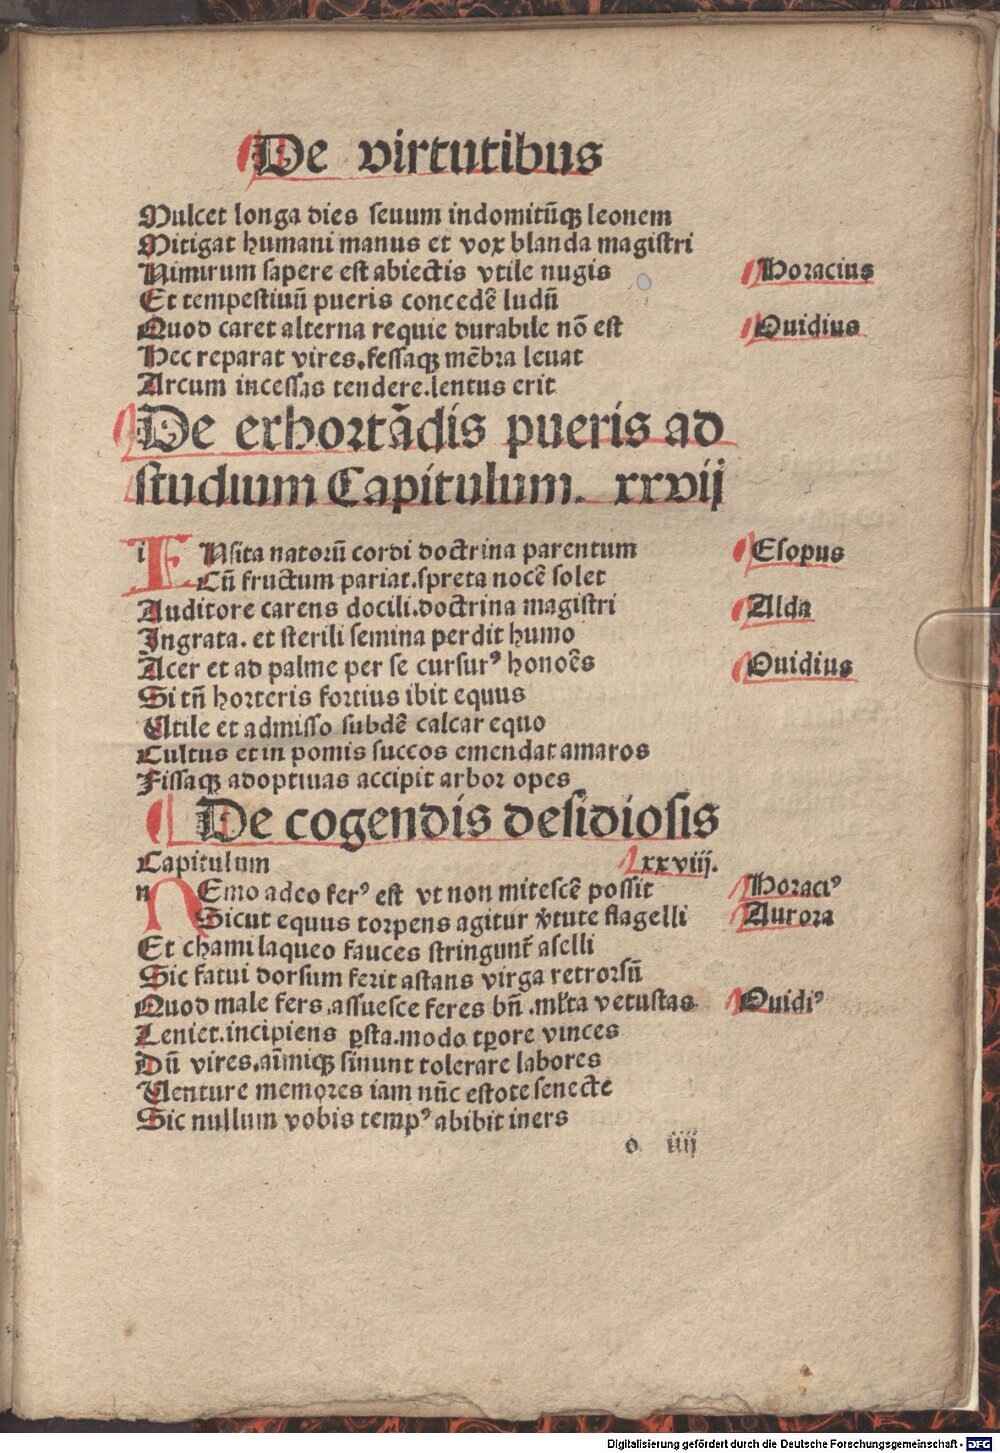 De virtutibus
Mulcet longa dies seuum indomitũqꝫ leonem
Mitigat humani manus et vox blanda magistri
Nimirum sapere est abiectis vtile nugis
Horacius
Et tempestiuũ pueris concedẽ ludũ
Quod caret alterna requie durabile nõ est
Ouidius
Hec reparat vires.fessaqꝫ mẽbra leuat
Arcum incessas tendere.lentus erit
De exhortãdis pueris ad
studium Capitulum. xxvij
i
Nsita natorũ cordi doctrina parentum
Esopus
Cũ fructum pariat.spreta nocẽ solet
Auditore carens docili.doctrina magistri
Alda
Ingrata. et sterili semina perdit humo
Acer et ad palme per se cursurꝰ honoẽs
Ouidius
Si tñ horteris fortius ibit equus
Utile et admisso subdẽ calcar equo
Cultus et in pomis succos emendat amaros
Fissaqꝫ adoptiuas accipit arbor opes
De cogendis desidiosis
Capitulum xxviij.
n
NEmo adeo ferꝰ est vt non mitescẽ possit
Horaciꝰ
Sicut equus torpens agitur v̓tute flagelli
Aurora
Et chami laqueo fauces stringunt̃ aselli
Sic fatui dorsum ferit astans virga retrorsũ
Quod male fers.assuesce feres bñ.ml̓ta vetustas
Ouidiꝰ
Leniet.incipiens ꝑsta.modo tꝑore vinces
Dũ vires.aĩmiqꝫ sinunt tolerare labores
Venture memores iam nũc estote senecte
Sic nullum vobis tempꝰ abibit iners
o iiij
Digitalisierung gefördert durch die Deutsche Forschungsgemeinschaft - DFG